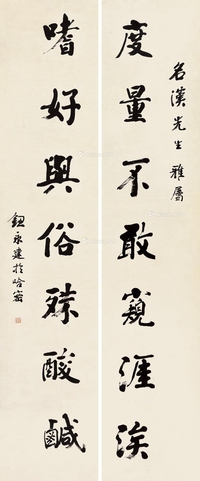 名漢先生雅屬
度量不敢窺涯涘
嗜好與俗殊酸鹹
鈕永建於哈密